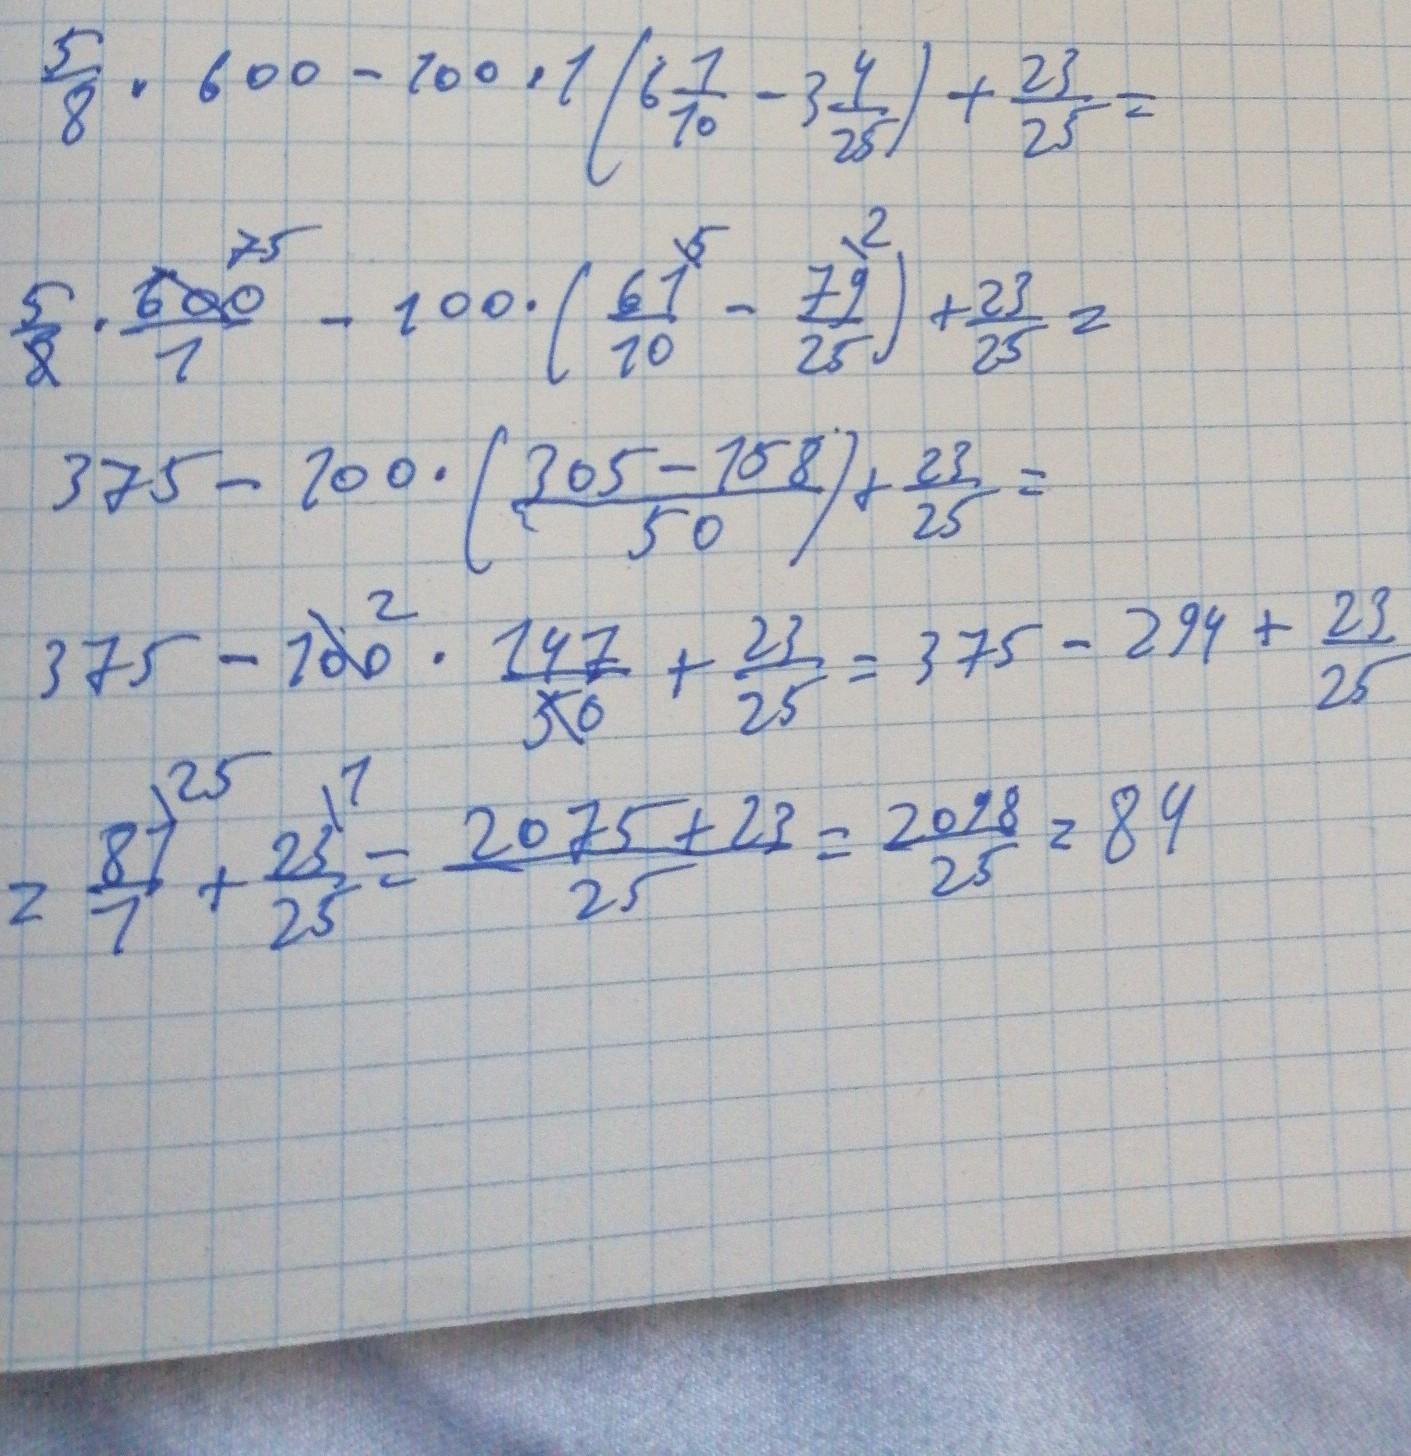 5/8 · 600 - 100 · 1 (6 1/10 - 3 4/25) + 23/25 =
5/8 · 600/1 75 - 100 · (61/10 5 - 79/25 2) + 23/25 =
375 - 100 · (305 - 158 / 50) + 23/25 =
375 - 100 2 · 147/50 + 23/25 = 375 - 294 + 23/25
= 81/1 25 + 23/25 1 = 2075 + 23 / 25 = 2098/25 = 84